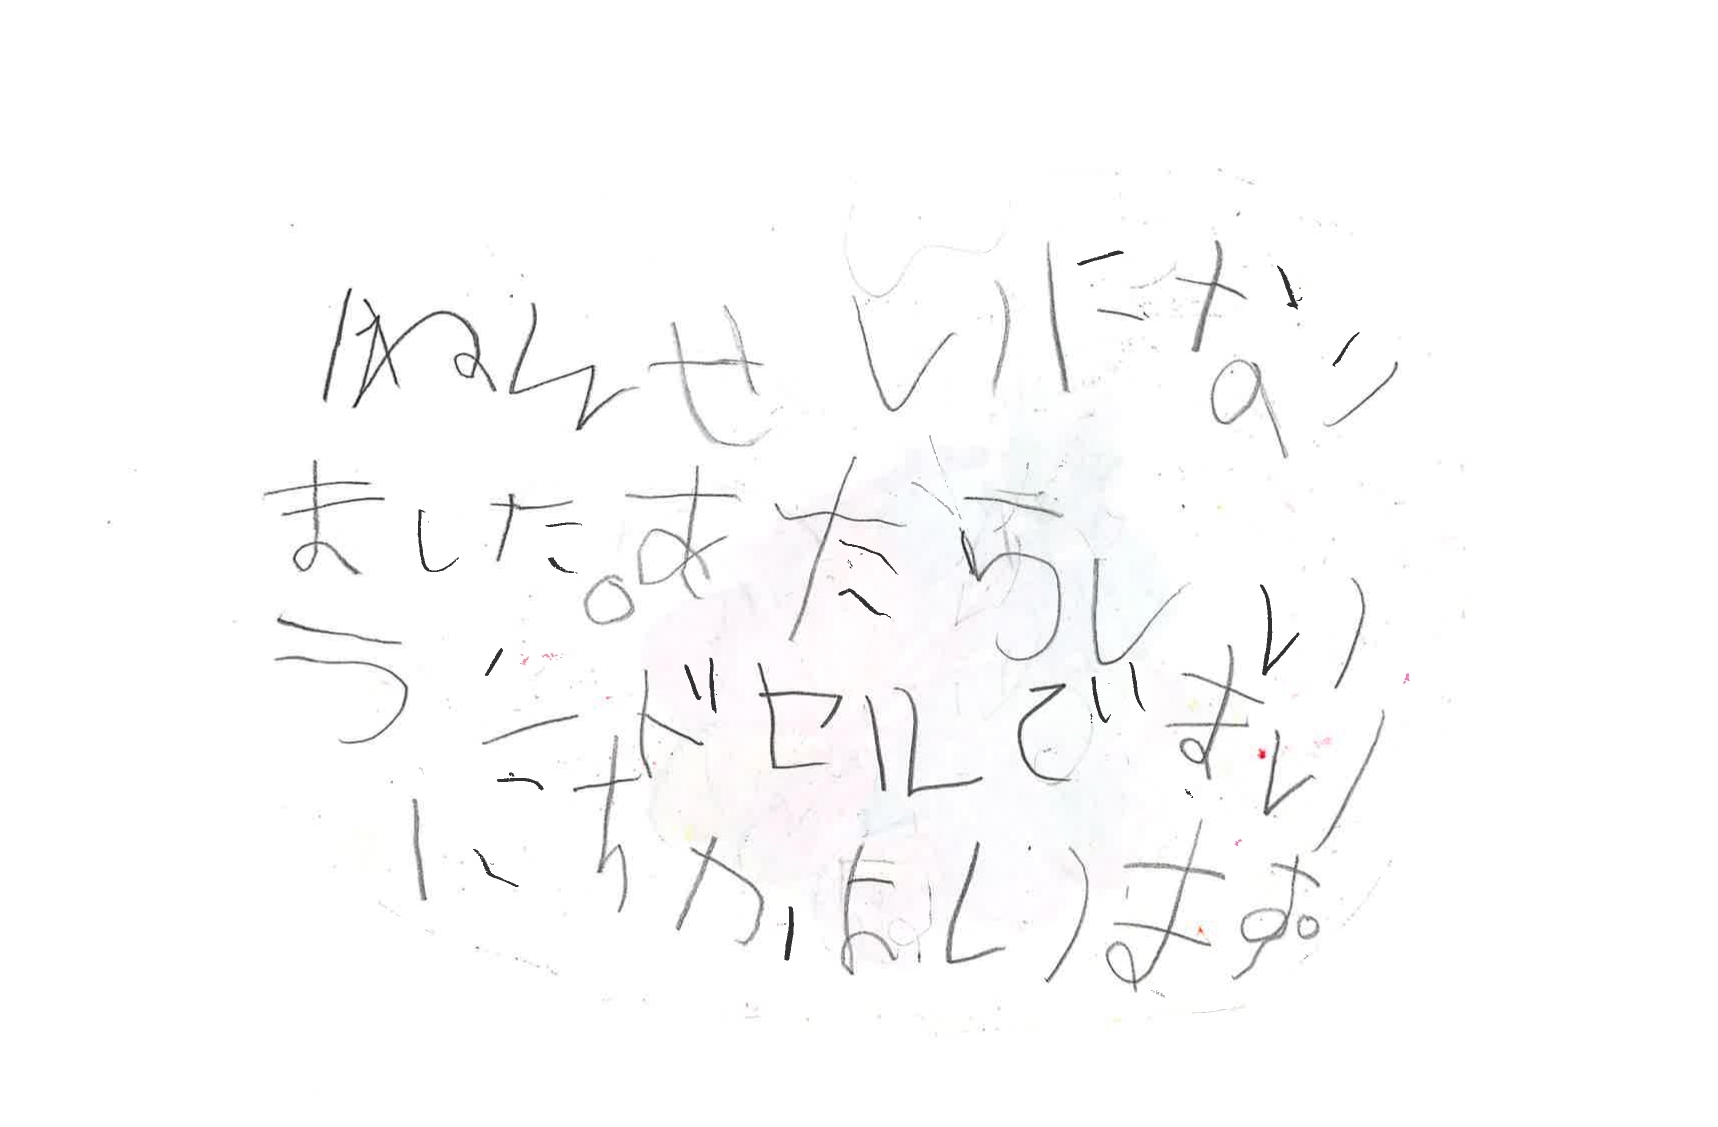 1ねんせいになり
ました。あたらしい
ランドセルでまい
にちかよいます。